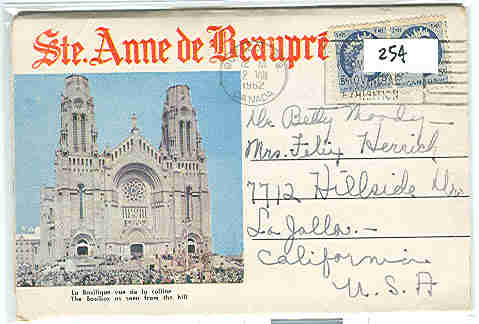 Ste. Anne de Beaupré
254
1962
CANADA
Betty Moody
Mrs. Felix Herrick
7712 Hillside Dr.
La Jolla.—
California
U.S.A
La Basilique vue de la colline
The Basilica as seen from the hill